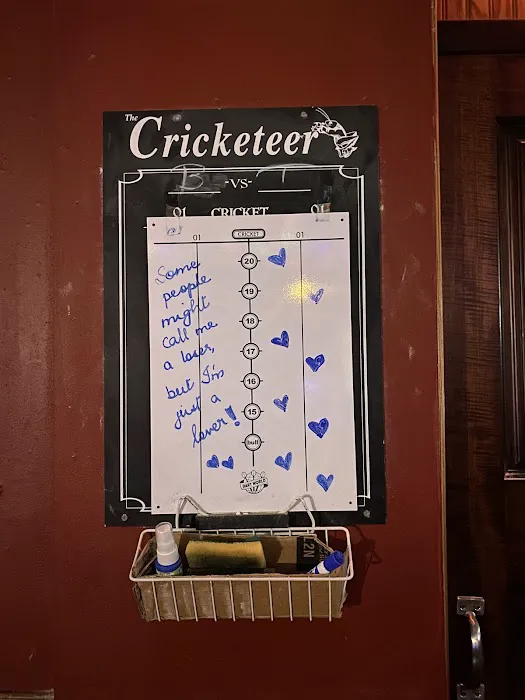 The
Cricketeer
B -VS- T
01 CRICKET 01
CRICKET
01 01
Some
people
might
call me
a loser,
but I'm
just a
lover!
20
19
18
17
16
15
bull
DART WORLD